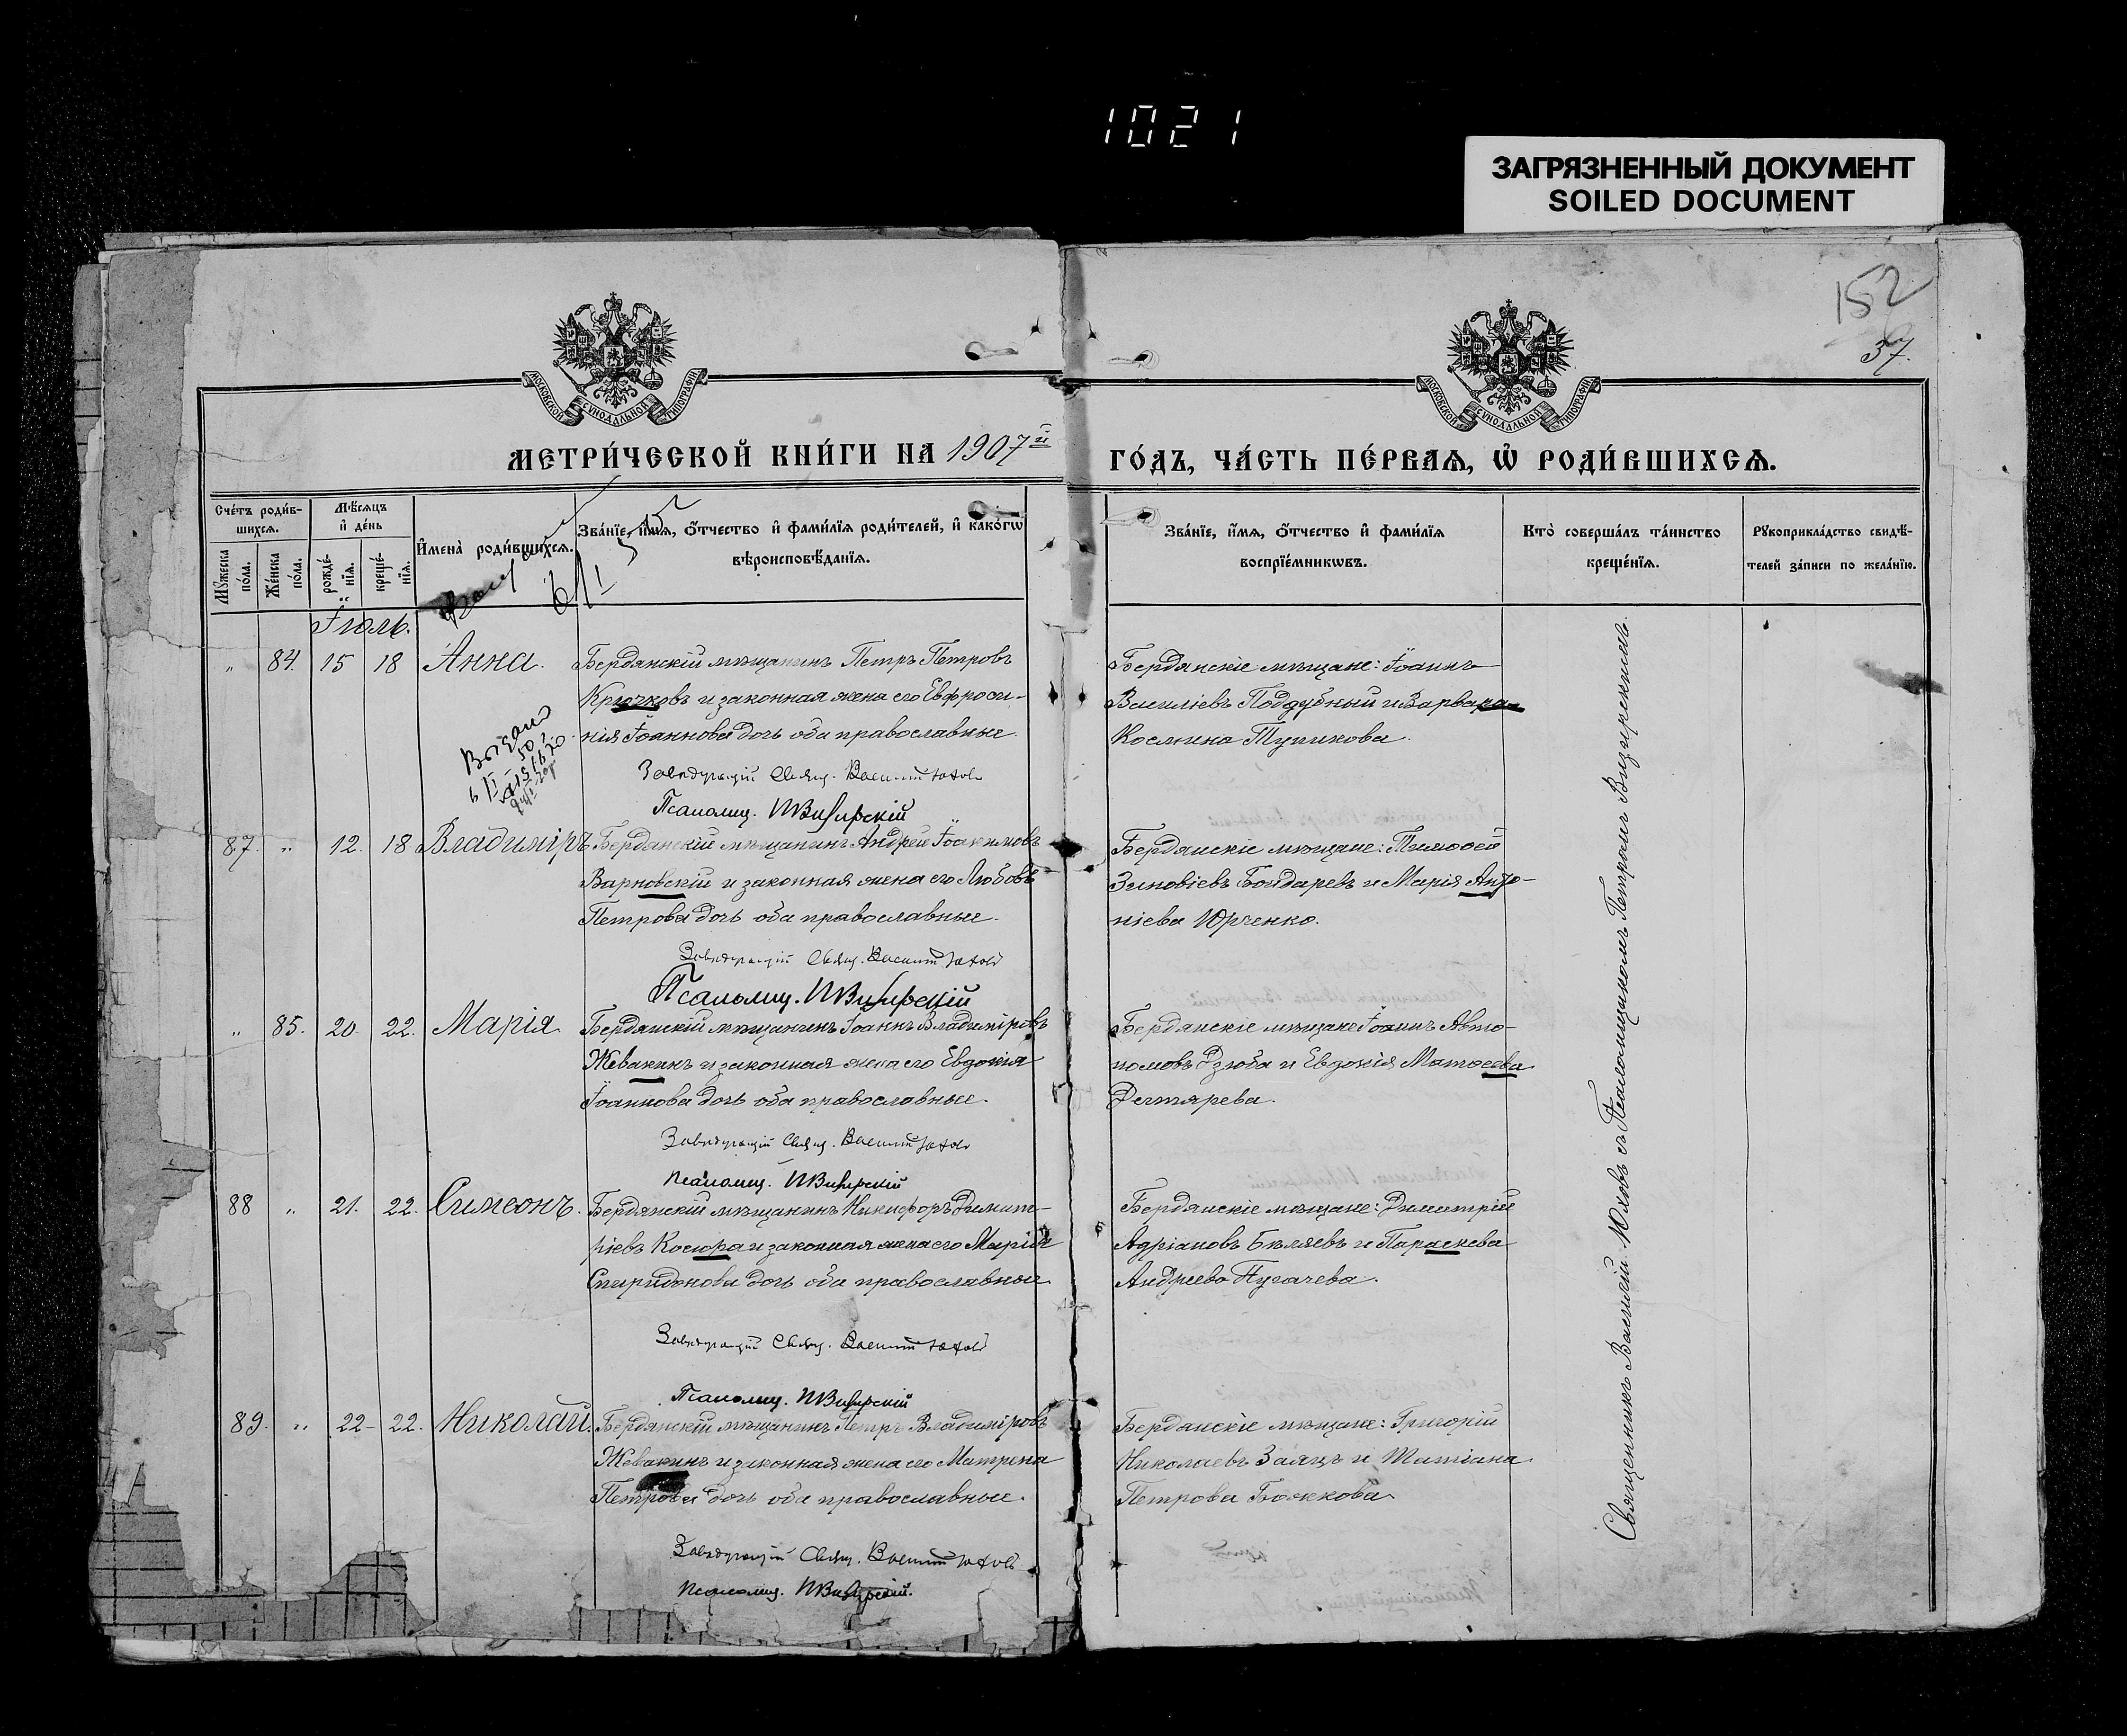 1021
ЗАГРЯЗНЕННЫЙ ДОКУМЕНТ
SOILED DOCUMENT
152
37.
МОСКОВСКОЙ СѴНОДАЛЬНОЙ ТИПОГРАФІИ
МОСКОВСКОЙ СѴНОДАЛЬНОЙ ТИПОГРАФІИ
МЕТРИ́ЧЕСКОЙ КНИ́ГИ НА 1907й
ГО́ДЪ, ЧА́СТЬ ПЕ́РВАѦ, Ѡ҆ РОДИ́ВШИХСѦ.
Сче́тъ роди́в-
шихсѧ.
Мꙋ́жеска по́ла.
Же́нска по́ла.
Мѣ́сѧцъ и҆ де́нь
рожде́-нїѧ.
креще́-нїѧ.
И҆мена̀ роди́вшихсѧ.
Зва́нїе, и҆́мѧ, ѻ҆́тчество и҆ фами́лїѧ роди́телей, и҆ како́гѡ
вѣроисповѣ́данїѧ.
Зва́нїе, и҆́мѧ, ѻ҆́тчество и҆ фами́лїѧ
воспрїе́мникѡвъ.
Кто̀ соверша́лъ та́инство
креще́нїѧ.
Рꙋкоприкла́дство свидѣ́-
телей за́писи по жела́нїю.
Іюль.
" 84. 15 18 Анна.
Бердянскій мѣщанинъ Петръ Петровъ
Крючковъ и законная жена его Евфроси-
нія Іоаннова дочь оба православные.
Завѣдующій Свящ. Василій Юховъ
Псаломщ. ПВизирскій
Бердянскіе мѣщане: Іоаннъ
Василіевъ Поддубный и Варвара
Космина Тупикова.
Выдано
87. " 12. 18 Владиміръ
Бердянскій мѣщанинъ Андрей Іоакимовъ
Варновскій и законная жена его Любовь
Петрова дочь оба православные.
Завѣдующій Свящ. Василій Юховъ
Псаломщ. ПВизирскій
Бердянскіе мѣщане: Тимоѳей
Зиновіевъ Бондаревъ и Марія Анто-
ніева Юрченко.
" 85. 20. 22. Марія
Бердянскій мѣщанинъ Іоаннъ Владиміровъ
Жевакинъ и законная жена его Евдокія
Іоаннова дочь оба православные.
Завѣдующій Свящ. Василій Юховъ
Псаломщ. ПВизирскій
Бердянскіе мѣщане Іоаннъ Авто-
номовъ Дзюба и Евдокія Матѳеева
Дегтярева.
88 " 21. 22. Симеонъ.
Бердянскій мѣщанинъ Никифоръ Димит-
ріевъ Косюра и законная жена его Марія
Спиридонова дочь оба православные
Завѣдующій Свящ. Василій Юховъ
Псаломщ. ПВизирскій
Бердянскіе мѣщане: Димитрій
Адріановъ Бѣляевъ и Параскева
Андреева Пугачева.
89. " 22- 22. Николай.
Бердянскій мѣщанинъ Петръ Владиміровъ
Жевакинъ и законная жена его Матрена
Петрова дочь оба православные.
Завѣдующій Свящ. Василій Юховъ
Псаломщ. ПВизирскій.
Бердянскіе мѣщане: Григорій
Николаевъ Заяцъ и Татіана
Петрова Божкова.
Священникъ Василій Юховъ съ Псаломщикомъ Петромъ Визирскимъ.